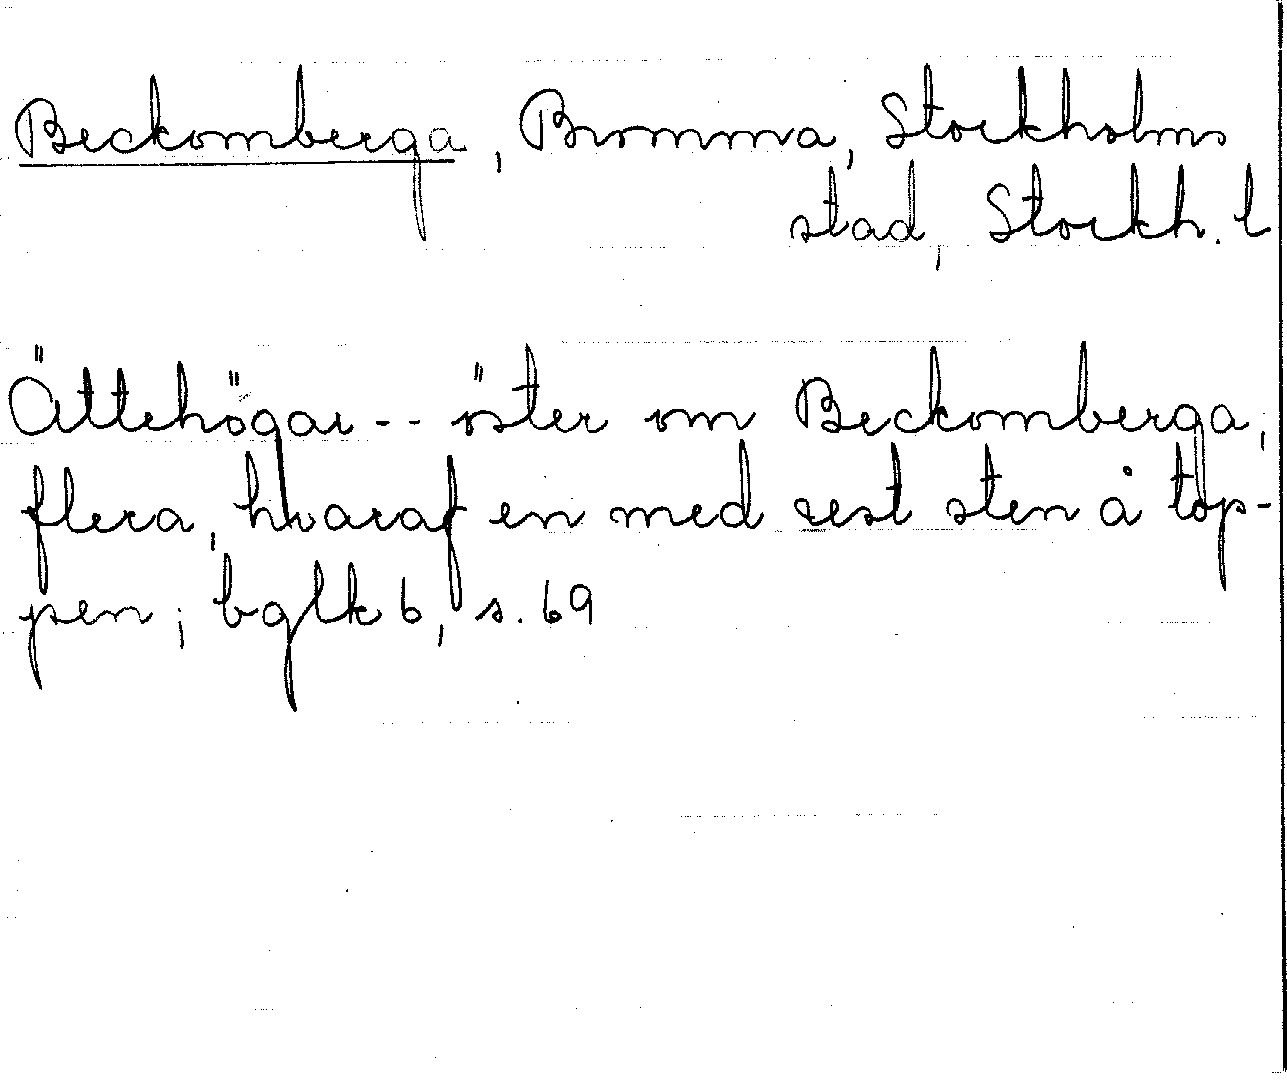 Beckomberga, Bromma, Stockholms
stad, Stockh. l
Ättehögar -- öster om Beckomberga,
flera, hvaraf en med rest sten å top-
pen; bglk 6, s. 69